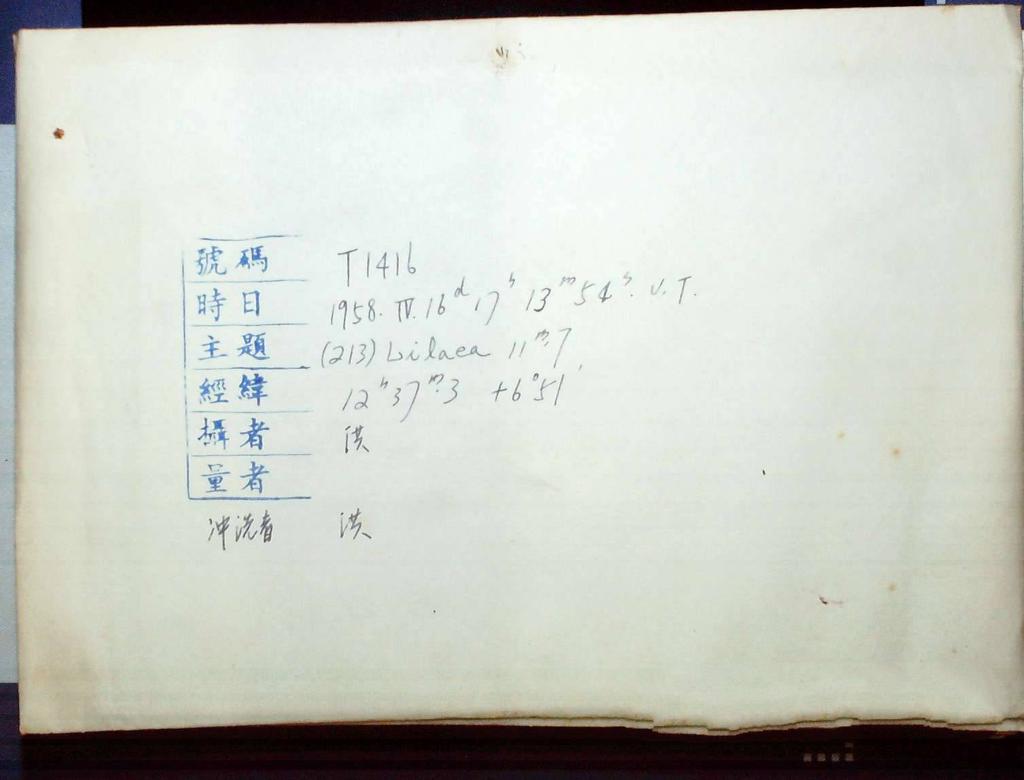 號碼 T1416
時日 1958. IV. 16ᵈ 17ʰ 13ᵐ 54ˢ. U.T.
主題 (213) Lilaea 11ᵐ.7
經緯 12ʰ37ᵐ.3 +6°51′
攝者 洪
量者
冲洗者 洪